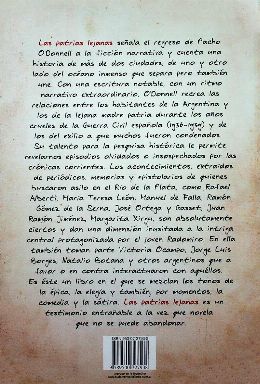 Las patrias lejanas señala el regreso de Pacho
O'Donnell a la ficción narrativa y cuenta una
historia de más de dos ciudades, de uno y otro
lado del océano inmenso que separa pero también
une. Con una escritura notable, con un ritmo
narrativo extraordinario, O'Donnell recrea las
relaciones entre los habitantes de la Argentina y
los de la lejana madre patria durante los años
crueles de la Guerra Civil española (1936-1939) y
los del exilio a que muchos fueron condenados.
Su talento para la pesquisa histórica le permite
revelarnos episodios olvidados e insospechados por las
crónicas corrientes. Los acontecimientos, extraídos
de periódicos, memorias y epistolarios de quienes
buscaron asilo en el Río de la Plata, como Rafael
Alberti, María Teresa León, Manuel de Falla, Ramón
Gómez de la Serna, José Ortega y Gasset, Juan
Ramón Jiménez, Margarita Xirgu, son absolutamente
ciertos y dan una dimensión inusitada a la intriga
central protagonizada por el joven Radomiro. En ella
también toman parte Victoria Ocampo, Jorge Luis
Borges, Natalio Botana y otros argentinos que a
favor o en contra interactuaron con aquéllos.
Es éste un libro en el que se mezclan los tonos de
la épica, la elegía y también, por momentos, la
comedia y la sátira. Las patrias lejanas es un
testimonio entrañable a la vez que novela
que no se puede abandonar.